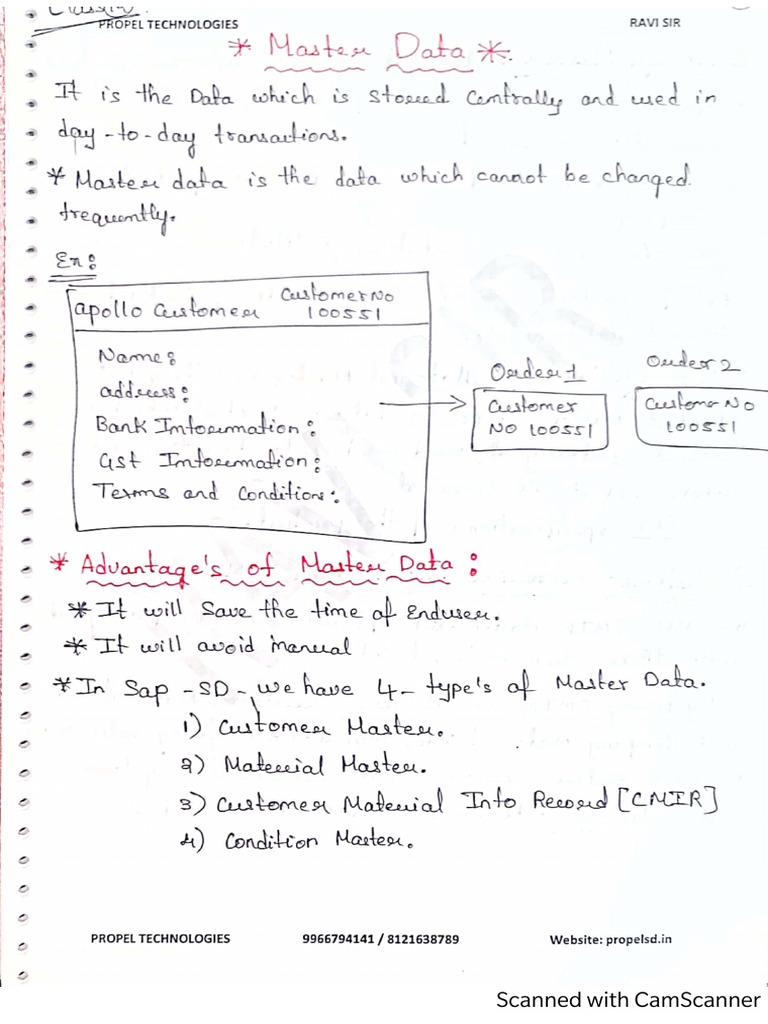 PROPEL TECHNOLOGIES RAVI SIR
* Master Data *
It is the Data which is stored Centrally and used in
day-to-day transactions.
* Master data is the data which cannot be changed
frequently.
Ex:
apollo Customer Customer No
100551
Name:
address:
Bank Information:
Gst Information:
Terms and Condition:
Order 1
Customer
NO 100551
Order 2
Custome No
100551
* Advantage's of Master Data:
* It will Save the time of Enduser.
* It will avoid manual
* In Sap -SD- we have 4- type's of Master Data.
1) Customer Master.
2) Material Master.
3) Customer Material Info Record [CMIR]
4) Condition Master.
PROPEL TECHNOLOGIES 9966794141 / 8121638789 Website: propelsd.in
Scanned with CamScanner